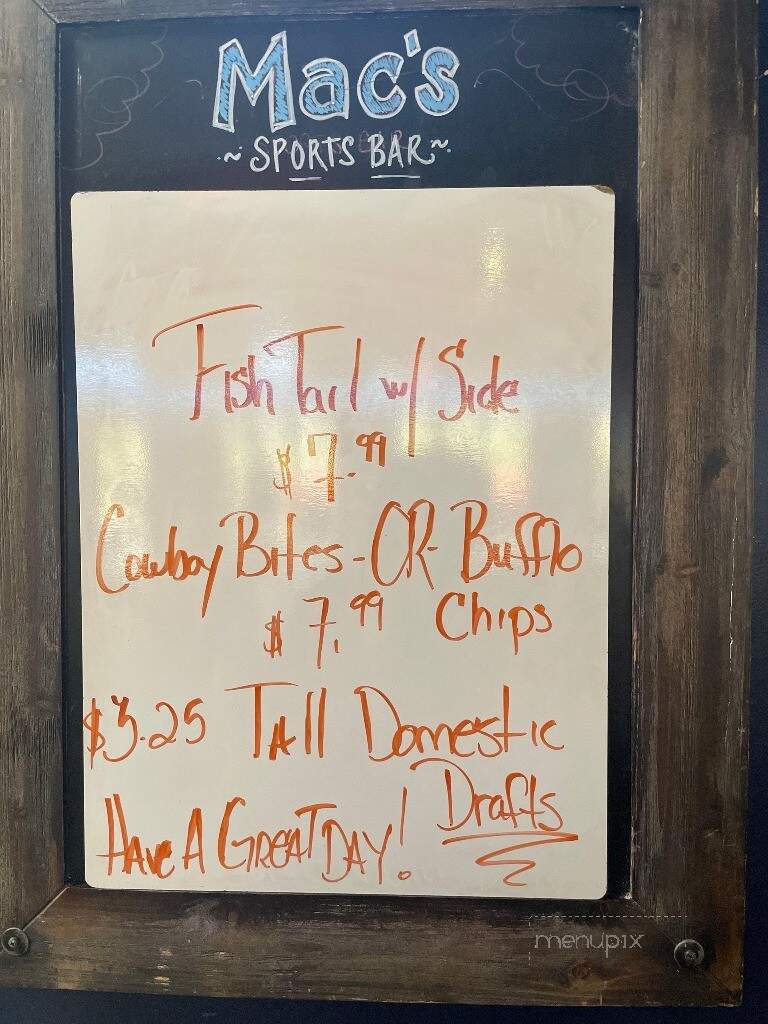 Mac's
~ SPORTS BAR ~
Fish Tail w/ Side
$7.99
Cowboy Bites - OR - Bufflo
$7.99 Chips
$3.25 Tall Domestic
Drafts
HAVE A GREAT DAY!
menupix